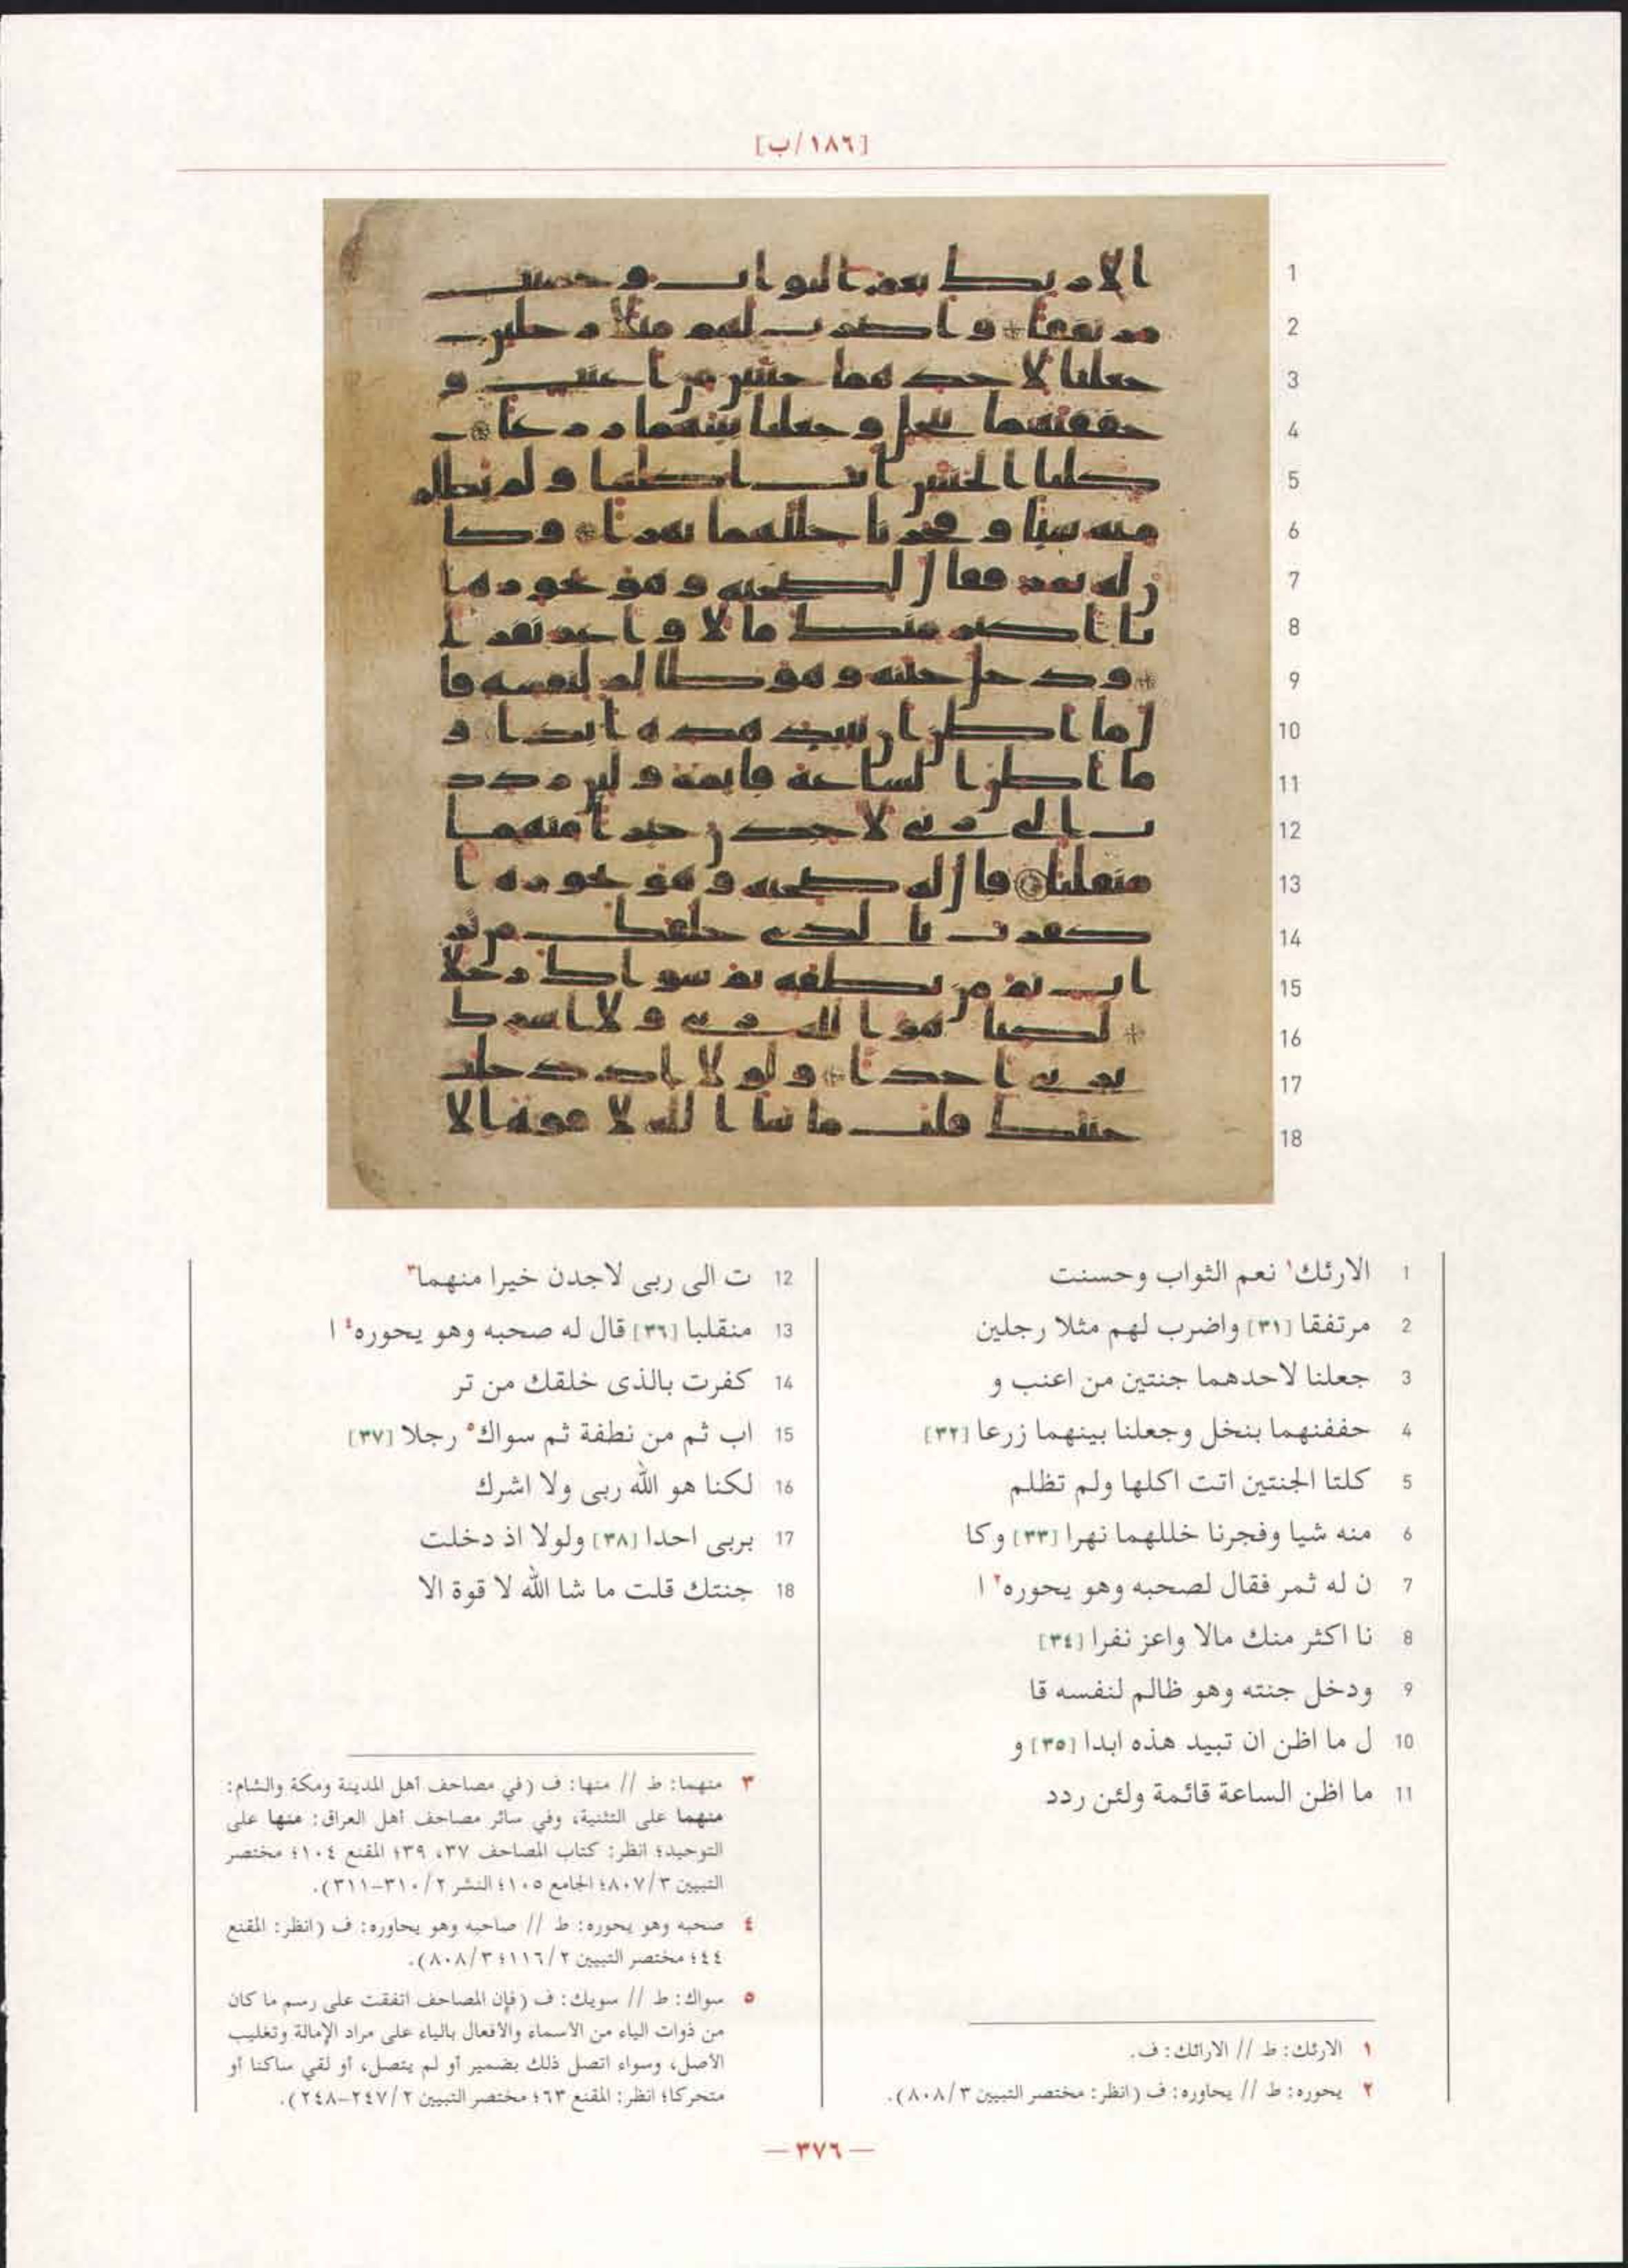 [١٨٦/ب]
1 الارئك١ نعم الثواب وحسنت
2 مرتفقا [٣١] واضرب لهم مثلا رجلين
3 جعلنا لاحدهما جنتين من اعنب و
4 حففنهما بنخل وجعلنا بينهما زرعا [٣٢]
5 كلتا الجنتين اتت اكلها ولم تظلم
6 منه شيا وفجرنا خللهما نهرا [٣٣] وكا
7 ن له ثمر فقال لصحبه وهو يحوره٢ ا
8 نا اكثر منك مالا واعز نفرا [٣٤]
9 ودخل جنته وهو ظالم لنفسه قا
10 ل ما اظن ان تبيد هذه ابدا [٣٥] و
11 ما اظن الساعة قائمة ولئن ردد
١ الارئك: ط // الارائك: ف.
٢ يحوره: ط // يحاوره: ف (انظر: مختصر التبيين ٨٠٨/٣).
12 ت الى ربى لاجدن خيرا منهما٣
13 منقلبا [٣٦] قال له صحبه وهو يحوره٤ ا
14 كفرت بالذى خلقك من تر
15 اب ثم من نطفة ثم سواك٥ رجلا [٣٧]
16 لكنا هو الله ربى ولا اشرك
17 بربى احدا [٣٨] ولولا اذ دخلت
18 جنتك قلت ما شا الله لا قوة الا
٣ منهما: ط // منها: ف (في مصاحف أهل المدينة ومكة والشام:
منهما على التثنية، وفي سائر مصاحف أهل العراق: منها على
التوحيد؛ انظر: كتاب المصاحف ٣٧، ٣٩؛ المقنع ١٠٤؛ مختصر
التبيين ٨٠٧/٣؛ الجامع ١٠٥؛ النشر ٣١٠/٢-٣١١).
٤ صحبه وهو يحوره: ط // صاحبه وهو يحاوره: ف (انظر: المقنع
٤٤؛ مختصر التبيين ١١٦/٢؛ ٨٠٨/٣).
٥ سواك: ط // سويك: ف (فإن المصاحف اتفقت على رسم ما كان
من ذوات الياء من الأسماء والأفعال بالياء على مراد الإمالة وتغليب
الأصل، وسواء اتصل ذلك بضمير أو لم يتصل، أو لقي ساكنا أو
متحركا؛ انظر: المقنع ٦٣؛ مختصر التبيين ٢٤٧/٢-٢٤٨).
— ٣٧٦ —